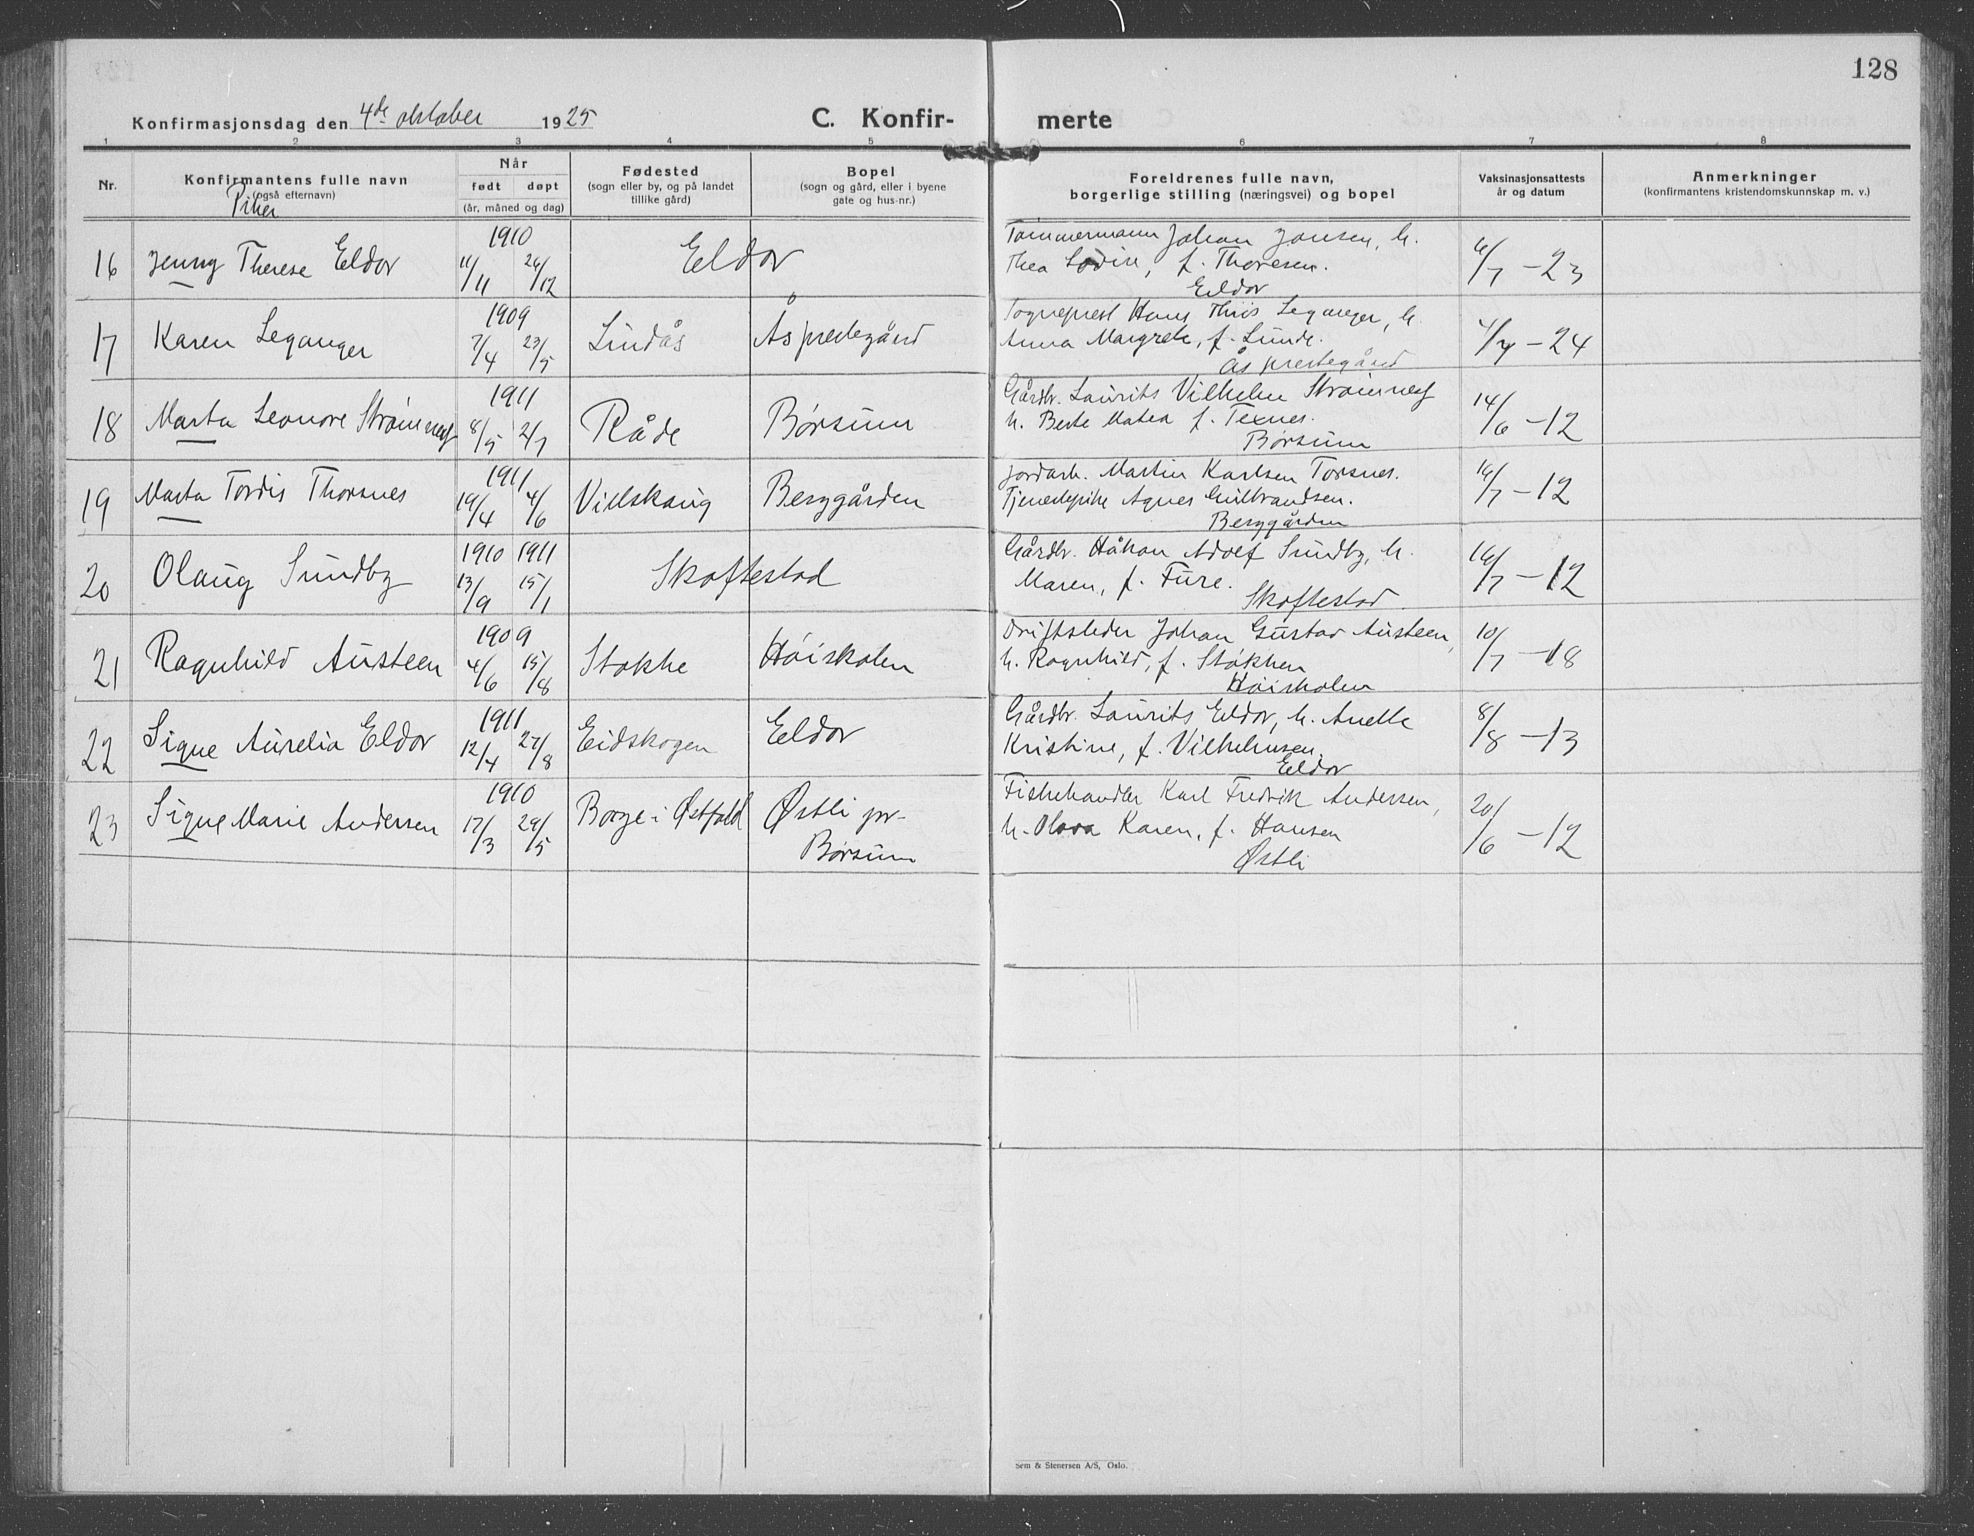 128
Konfirmasjonsdag den 4de oktober 1925 C. Konfir- merte
1 2 3 4 5 6 7 8
Nr. Konfirmantens fulle navn (også efternavn) Når født døpt (år, måned og dag) Fødested (sogn eller by, og på landet tillike gård) Bopel (sogn og gård, eller i byene gate og hus-nr.) Foreldrenes fulle navn, borgerlige stilling (næringsvei) og bopel Vaksinasjonsattests år og datum Anmerkninger (konfirmantens kristendomskunnskap m. v.)
Piker
1910 Tømmermann Johan Jonsen, h.
16 Jenny Therese Eldor 11/11 26/12 Eldor Thea Lovise, f. Thoresen. 6/7 - 23
Eldor
1909 Sogneprest Hans Thiis Leganger, h.
17 Karen Leganger 7/4 23/5 Lindås Ås prestegård Anna Margrete, f. Lunde. 4/7 - 24
Ås prestegård
1911 Gårdbr. Laurits Vilhelm Strømnes
18 Marta Leonore Strømnes 8/5 2/7 Råde Børsum h. Berte Matea f. Texnes. 14/6 - 12
Børsum
1911 Jordarb. Martin Karlsen Torsnes.
19 Marta Tordis Thorsnes 19/4 4/6 Vidskaug Berggården Tjenestepike Agnes Gulbrandsen. 16/7 - 12
Berggården
1910 1911 Gårdbr. Håkon Adolf Sundby, h.
20 Olaug Sundby 13/9 15/1 Skoftestad Maren, f. Fure. 16/7 - 12
Skoftestad.
1909 Driftsleder Johan Gustav Austeen,
21 Ragnhild Austeen 4/6 15/8 Stokke Høiskolen h. Ragnhild, f. Stokken 10/7 - 18
Høiskolen
1911 Gårdbr. Laurits Eldor, h. Anette
22 Signe Aurelia Eldor 12/4 27/8 Eidskogen Eldor Kristine, f. Vilhelmsen. 8/8 - 13
Eldor
1910 Fiskehandler Karl Fredrik Andersen,
23 Signe Marie Andersen 17/3 29/5 Borge i Østfold Østli pr. h. Olava Karen, f. Hansen 20/6 - 12
Børsum Østli
Sem & Stenersen A/S, Oslo.